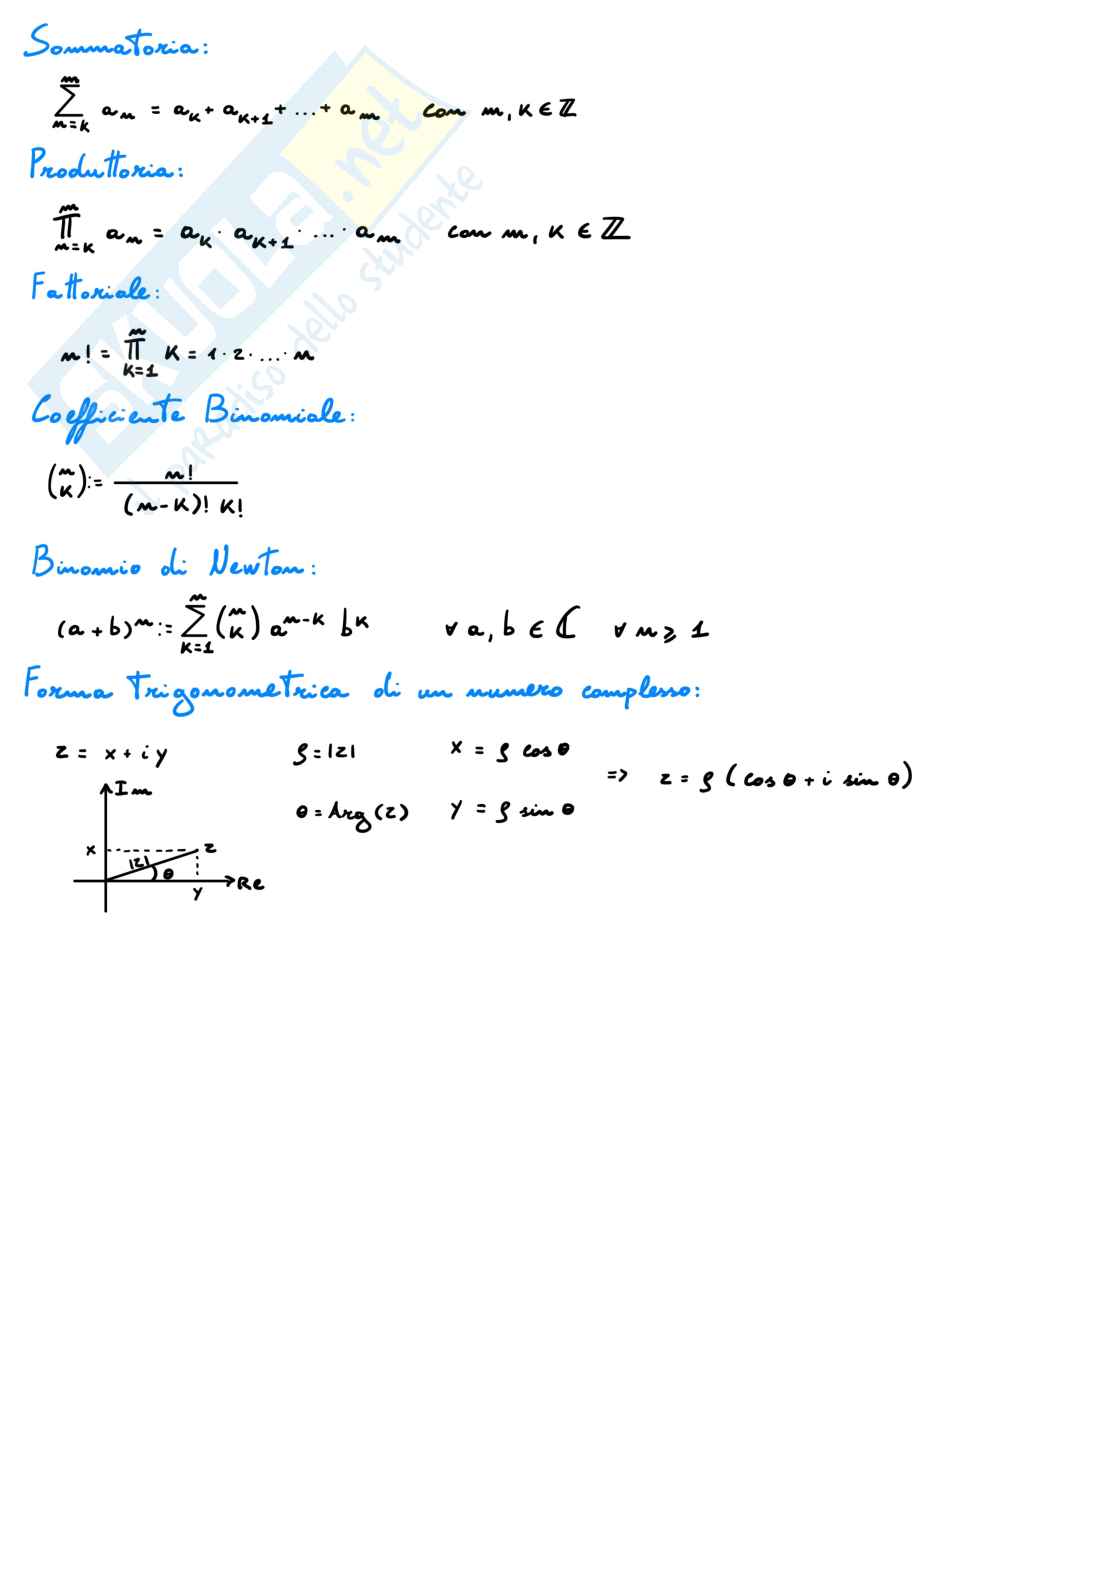 Sommatoria:
m
∑ aₙ = a_K + a_{K+1} + ... + a_m con m, K ∈ ℤ
n=K
Produttoria:
m
∏ aₙ = a_K · a_{K+1} · ... · a_m con m, K ∈ ℤ
n=K
Fattoriale:
n
n! = ∏ K = 1 · 2 · ... · n
K=1
Coefficiente Binomiale:
(n K) := n! / (n-K)! K!
Binomio di Newton:
n
(a+b)ⁿ := ∑ (n K) a^{n-K} b^K ∀ a, b ∈ ℂ ∀ n ⩾ 1
K=1
Forma Trigonometrica di un numero complesso:
z = x + i y ρ = |z| x = ρ cos θ
=> z = ρ (cos θ + i sin θ)
θ = Arg(z) y = ρ sin θ
Im
x |z| θ z
y Re
SKUOLA.net
il paradiso dello studente